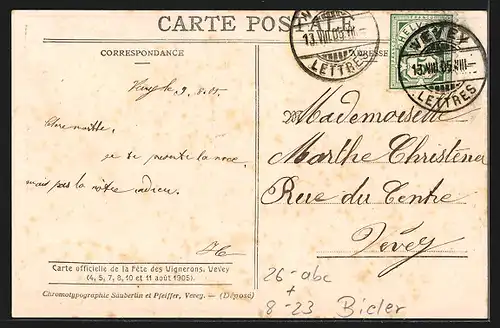 CARTE POSTALE
VEVEY
13.VIII.05.
LETTRES
HELVETIA
5
VEVEY
13.VIII.05.XIII
LETTRES
CORRESPONDANCE
ADRESSE
Vevey le 9.8.05.
Chère
je se la noce
mais pas la nôtre
Mademoiselle
Marthe Christena
Rue du Centre
Vevey
Carte officielle de la Fête des Vignerons, Vevey
(4, 5, 7, 8, 10 et 11 août 1905).
Chromotypographie Säuberlin et Pfeiffer, Vevey. — (Déposé)
26-abc
+
8-23 Bieler